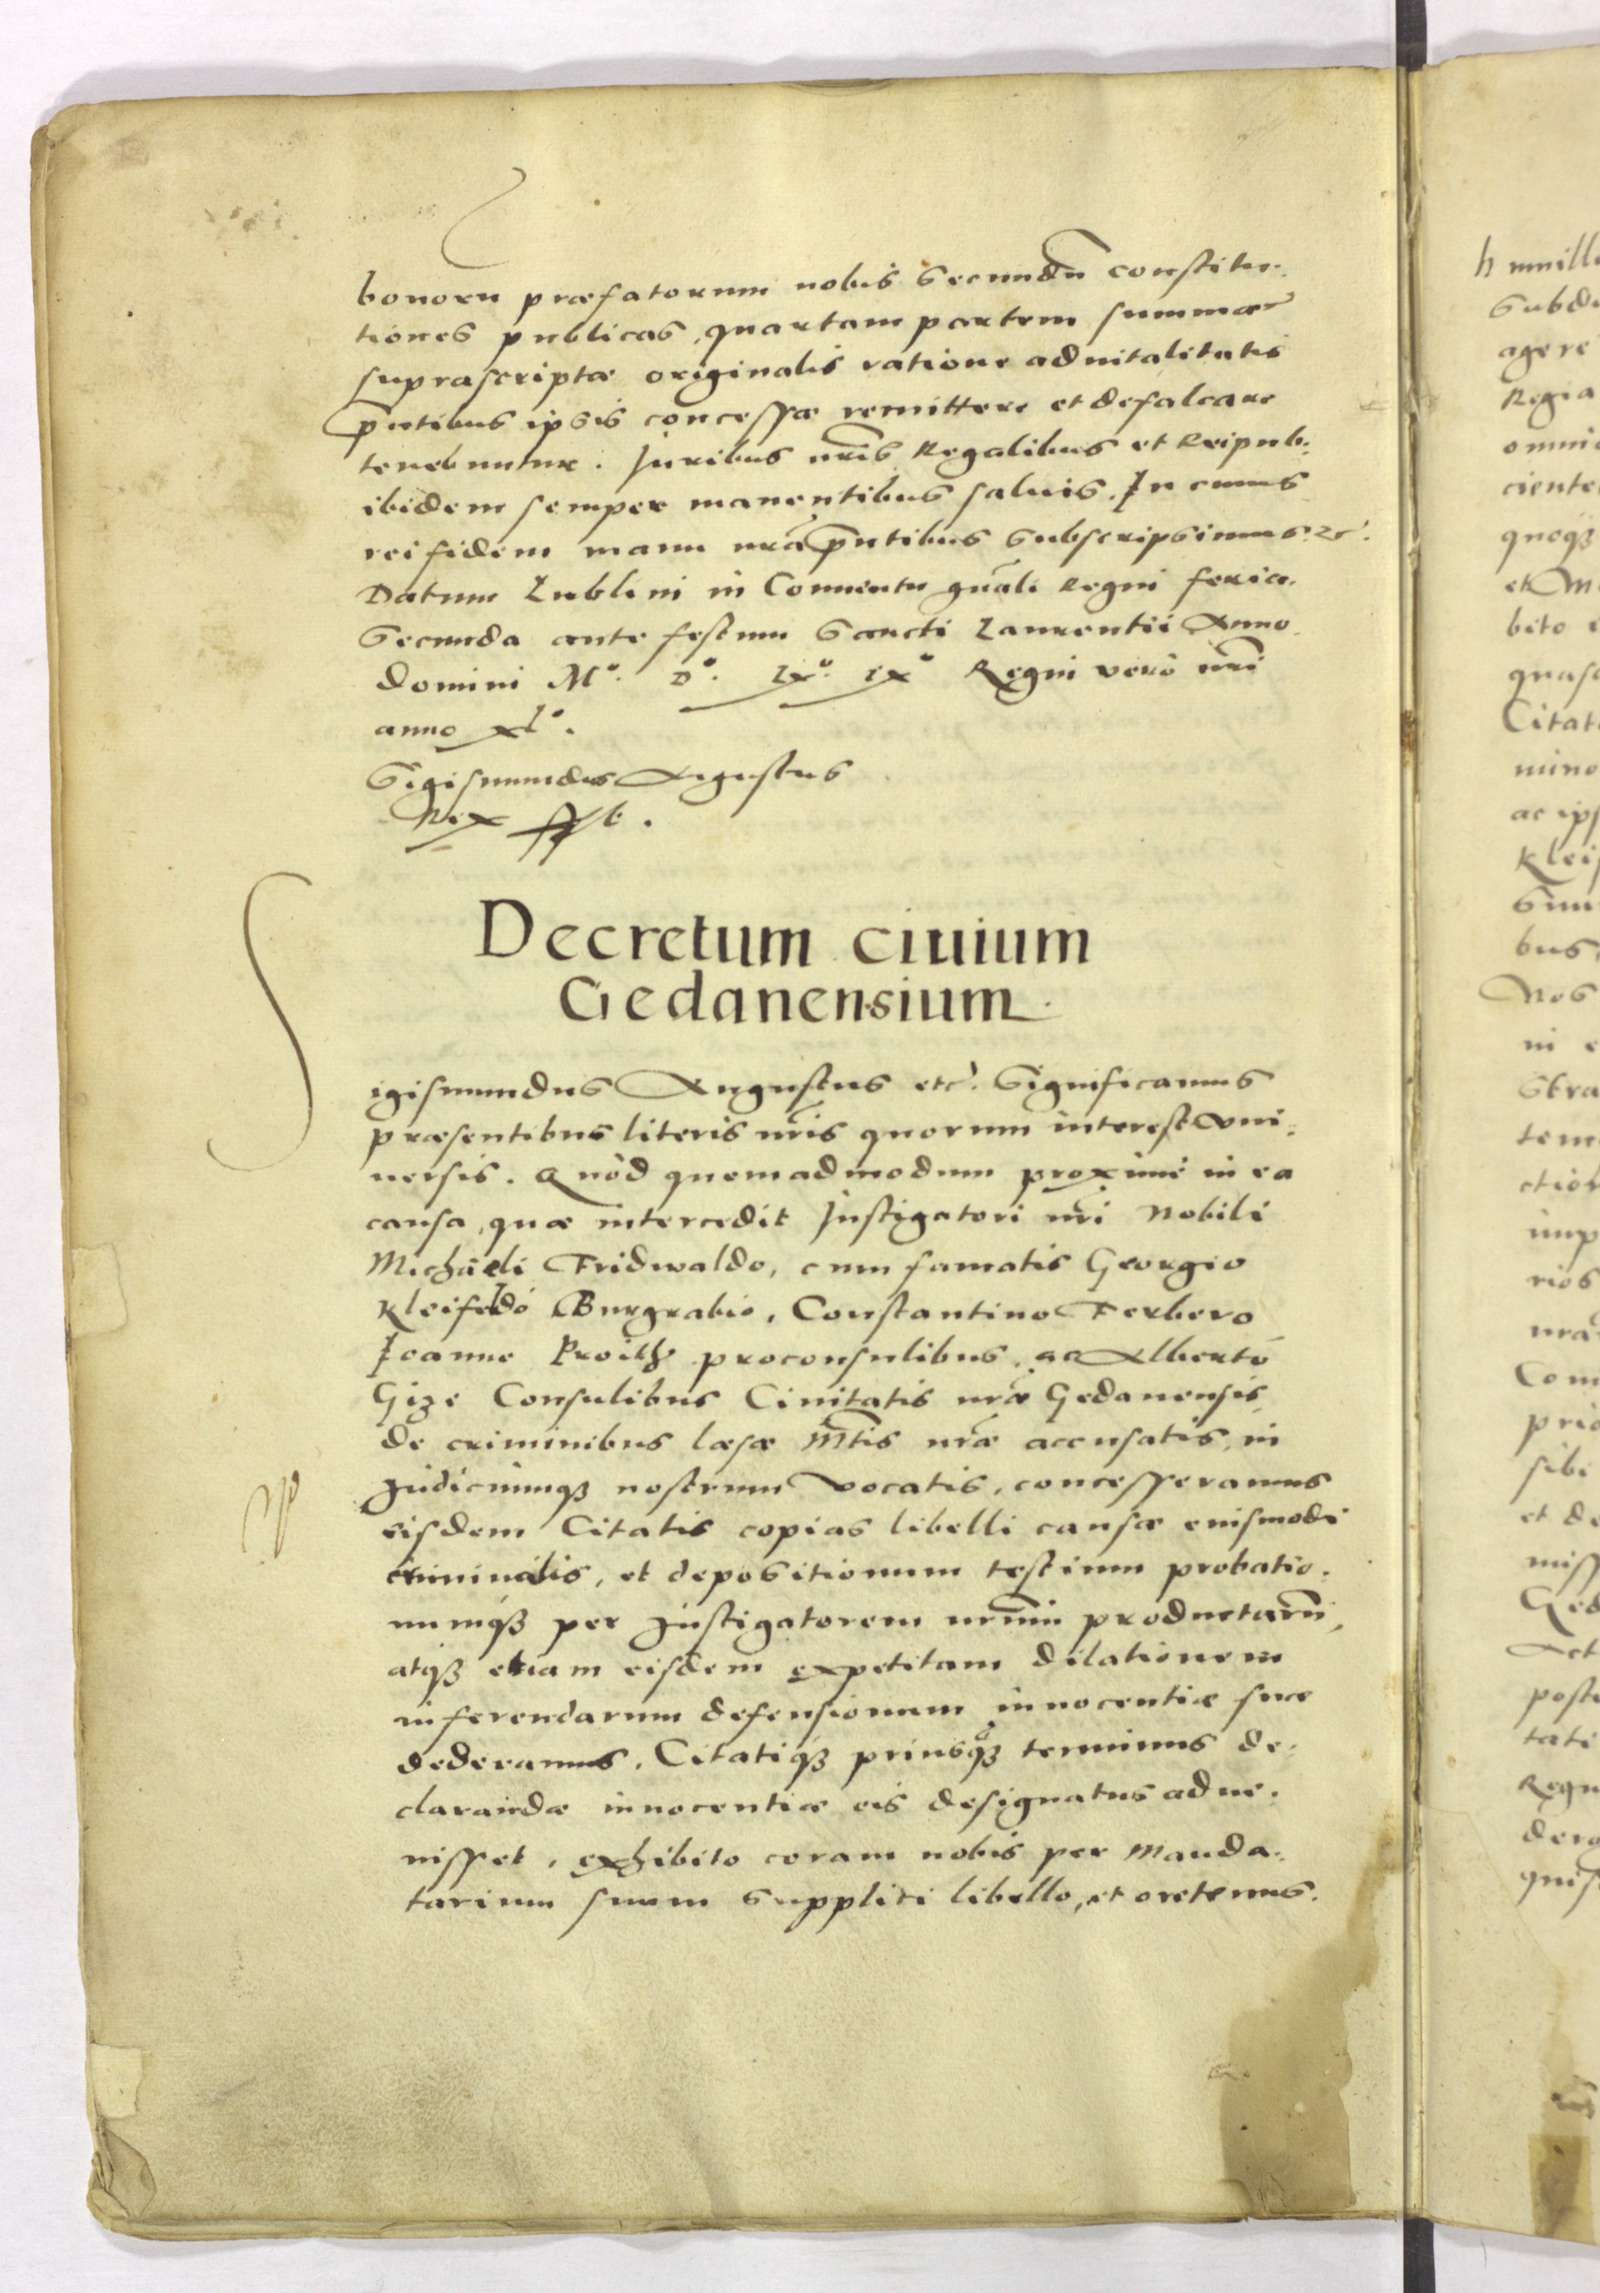 bonoru præfatorum nobis secundū constitu-
tiones publicas, quartam partem summæ
suprascriptæ originalis ratione aduitalitatis
pñtibus ipsis concessæ remittere et defalcare
tenebuntur. Juribus nr̃is Regalibus et Reipub:
ibidem semper manentibus saluis. In cuius
rei fidem manu nr̃a pñtibus subscripsimus. etc.
Datum Lublini in Conuentu gñali Regni feria
secunda ante festum Sancti Laurentii Anno
domini M°. D°. Lx°. ix° Regni vero nr̃i
anno xl°.
Sigismundus Augustus
Rex sst.
Decretum ciuium
Gedanensium.
Sigismundus Augustus etc. Significamus
præsentibus literis nr̃is quorum interest vni-
uersis. Quòd quemadmodum proximè in ea
causa, quæ intercedit Instigatori nr̃i Nobili
Michaëli Fridwaldo, cum famatis Georgio
Kleifeldo Burgrabio, Constantino Ferbero
Joanne Proith proconsulibus, ac Alberto
Gize Consulibus Ciuitatis nr̃æ Gedanensis
de criminibus læsæ Mt̃is nr̃æ accusatis, in
Judiciumqꝫ nostrum vocatis, concesseramus
eisdem Citatis copias libelli causæ euismodi
criminalis, et depositionum testium probatio-
numqꝫ per Instigatorem nr̃um productarũ,
atqꝫ etiam eisdem expetitam dilationem
inferendarum defensionum innocentiæ suæ
dederamus. Citatiqꝫ priusqꝫ terminus de-
clarandæ innocentiæ eis designatus adue-
nisset, exhibito coram nobis per Manda-
tarium suum supplici libello, et oretenus.